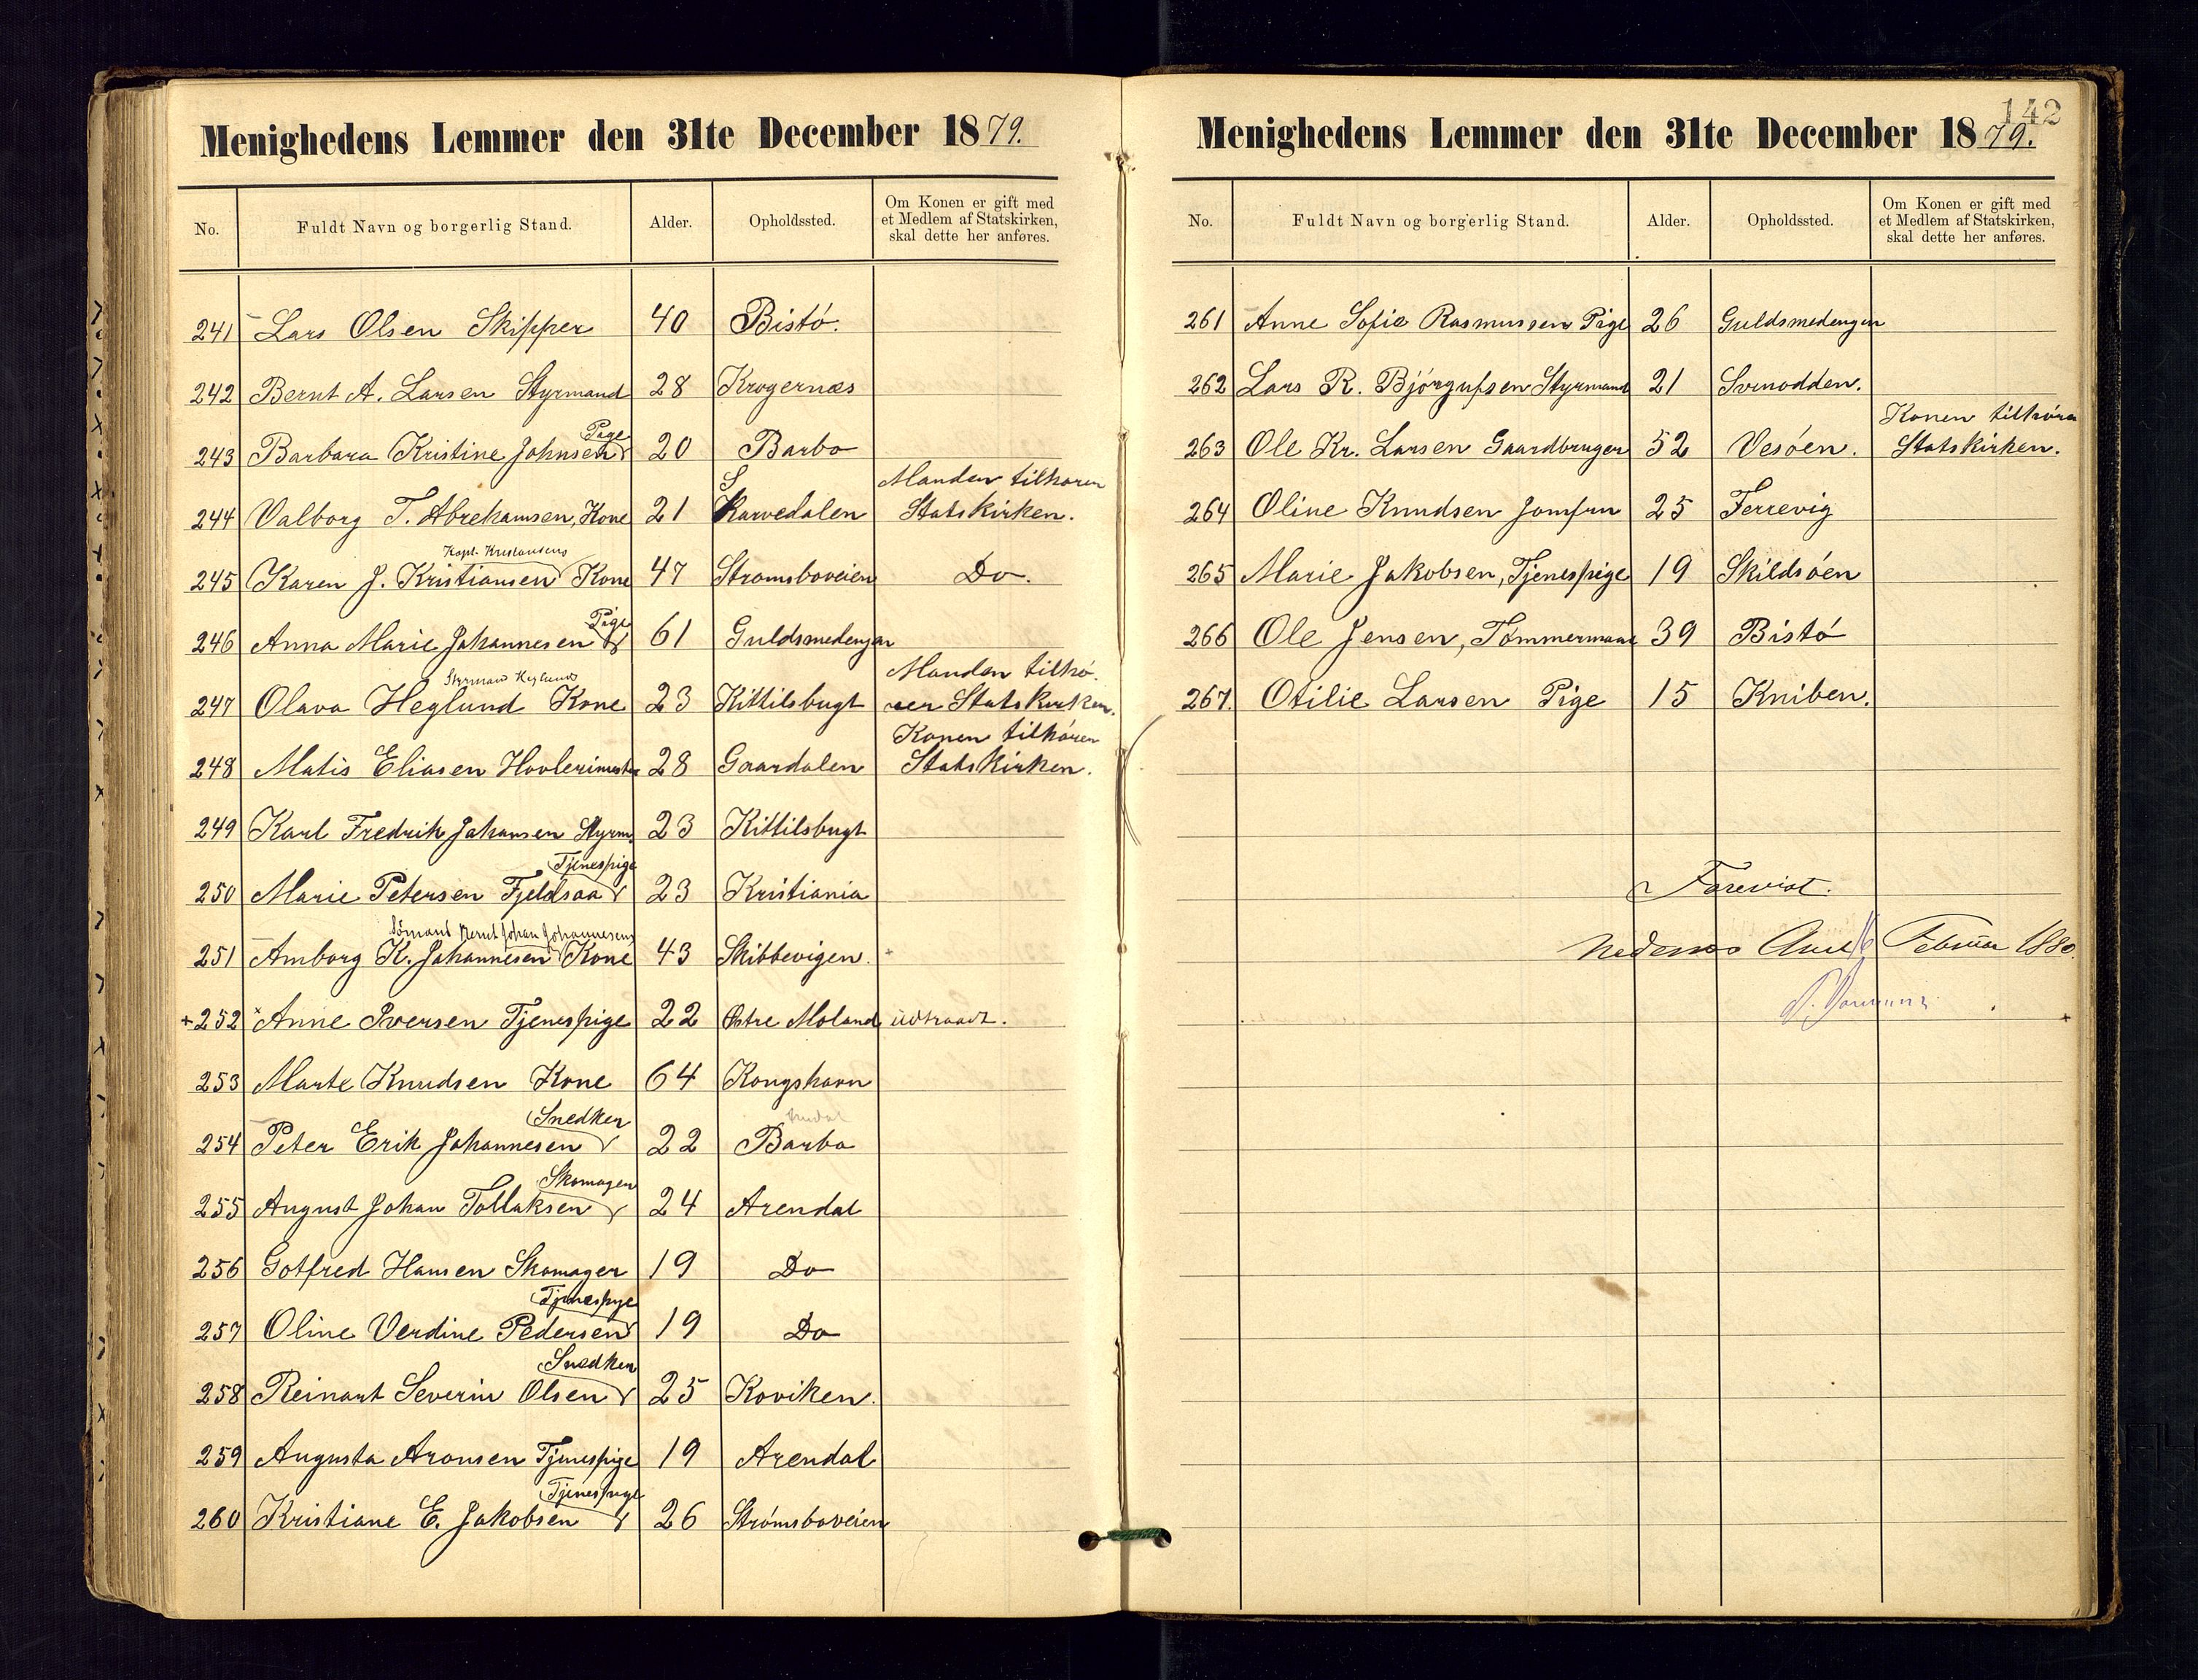 Menighedens Lemmer den 31te December 1879.
No. Fuldt Navn og borgerlig Stand. Alder. Opholdssted. Om Konen er gift med et Medlem af Statskirken, skal dette her anføres.
241 Lars Olsen Skipper 40 Bistö.
242 Bernt A. Larsen Styrmand 28 Krøgernæs
243 Barbara Kristine Johnsen Pige 20 Barbo
244 Valborg T. Abrehamsen, Kone 21 Karvedalen Manden tilhører Statskirken.
245 Karen J. Kristiansen Kapt. Kristiansens Kone 47 Stromsboveien Do.
246 Anna Marie Johannesen Pige 61 Guldsmedengen
247 Olava Heglund Styrmand Heglunds Kone 23 Kittilsbugt Manden tilhö. rer Statskirken.
248 Matis Eliasen Hovlerimester 28 Gaardalen Konen tilhören Statskirken.
249 Karl Fredrik Johansen Styrm. 23 Kittilsbugt
250 Marie Petersen Fjeldsaa Tjenespige 23 Kristiania
251 Amborg K. Johannesen Sømand Bernt Johan Johannesens Kone 43 Skibbevigen.
+252 Anne Iversen Tjenespige 22 Østre Moland udtraadt.
253 Marte Knudsen Kone 64 Kongshavn
254 Peter Erik Johannesen Snedker 22 Barbo
255 August Johan Tollaksen Skomager 24 Arendal
256 Gotfred Hansen Skomager 19 Do
257 Oline Verdine Pedersen Tjenespige 19 Do
258 Reinart Severin Olsen Snedker 25 Koviken.
259 Augusta Aronsen Tjenespige 19 Arendal
260 Kristiane E. Jakobsen Tjenespige 26 Strömsboveien
142
Menighedens Lemmer den 31te December 1879.
No. Fuldt Navn og borgerlig Stand. Alder. Opholdssted. Om Konen er gift med et Medlem af Statskirken, skal dette her anføres.
261 Anne Sofie Rasmussen Pige 26 Guldsmedengen
262 Lars R. Björgufsen Styrmand 21 Svinodden.
263 Ole Kr. Larsen Gaardbruger 52 Vesöen. Konen tilhörer Statskirken.
264 Oline Knudsen Jomfru 25 Ferrevig
265 Marie Jakobsen, Tjenespige 19 Skildsöen
266 Ole Jensen, Tömmermand 39 Bistö
267. Otilie Larsen Pige 15 Kniben.
Forevist.
Nedenes Amt 6 Februar 1880.